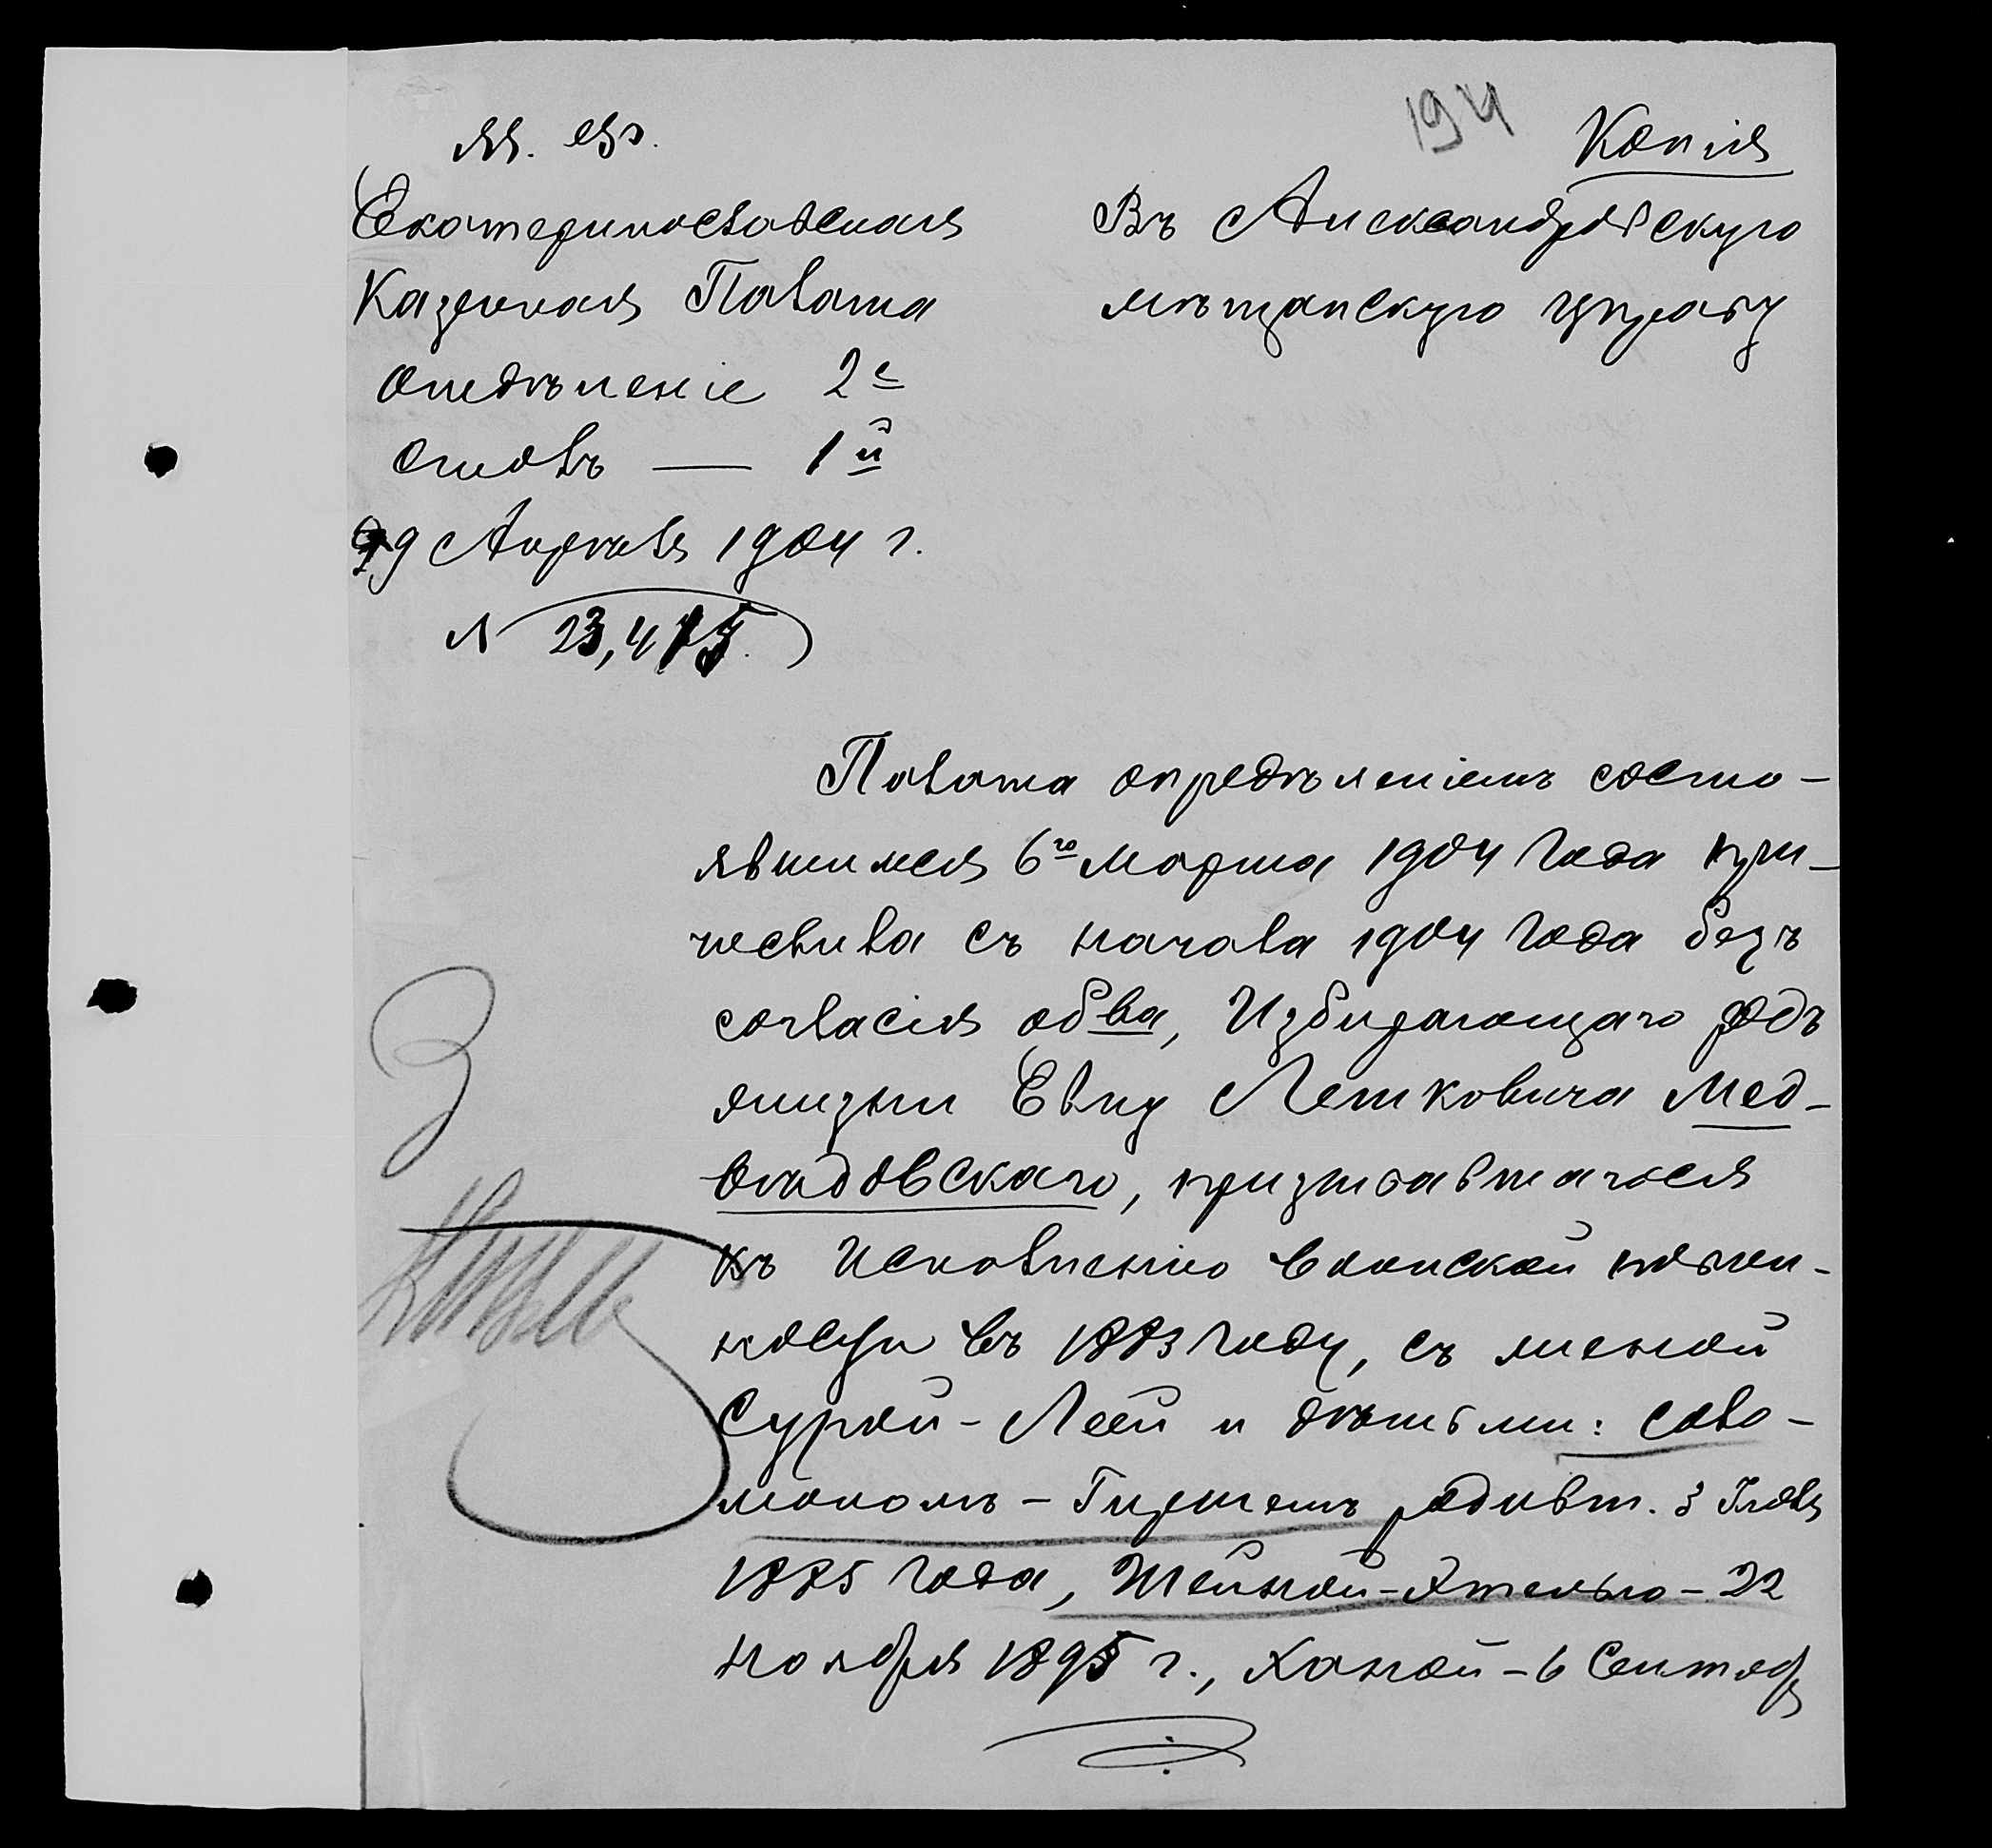 194
Копія
М. Ф.
Екатеринославская
Казенная Палата
Отдѣленіе 2е
Столъ — 1й
29 Апрѣля 1904 г.
N 23,475.
Въ Александровскую
мѣщанскую управу
Палата опредѣленіемъ состо-
явшимся 6го Марта 1904 года при-
числила съ начала 1904 года безъ
согласія об-ва, Избирающаго родъ
жизни Евну Лейковича Мед-
оладовскаго, призывавшагося
къ исполненію воинской повин-
ности въ 1883 году, съ женой
Сурой-Леей и дѣтьми: Соло-
мономъ-Гиршемъ родивш. 3 Іюля
1885 года, Шейной-Этелью - 22
ноября 1895 г., Ханой - 6 Сентяб